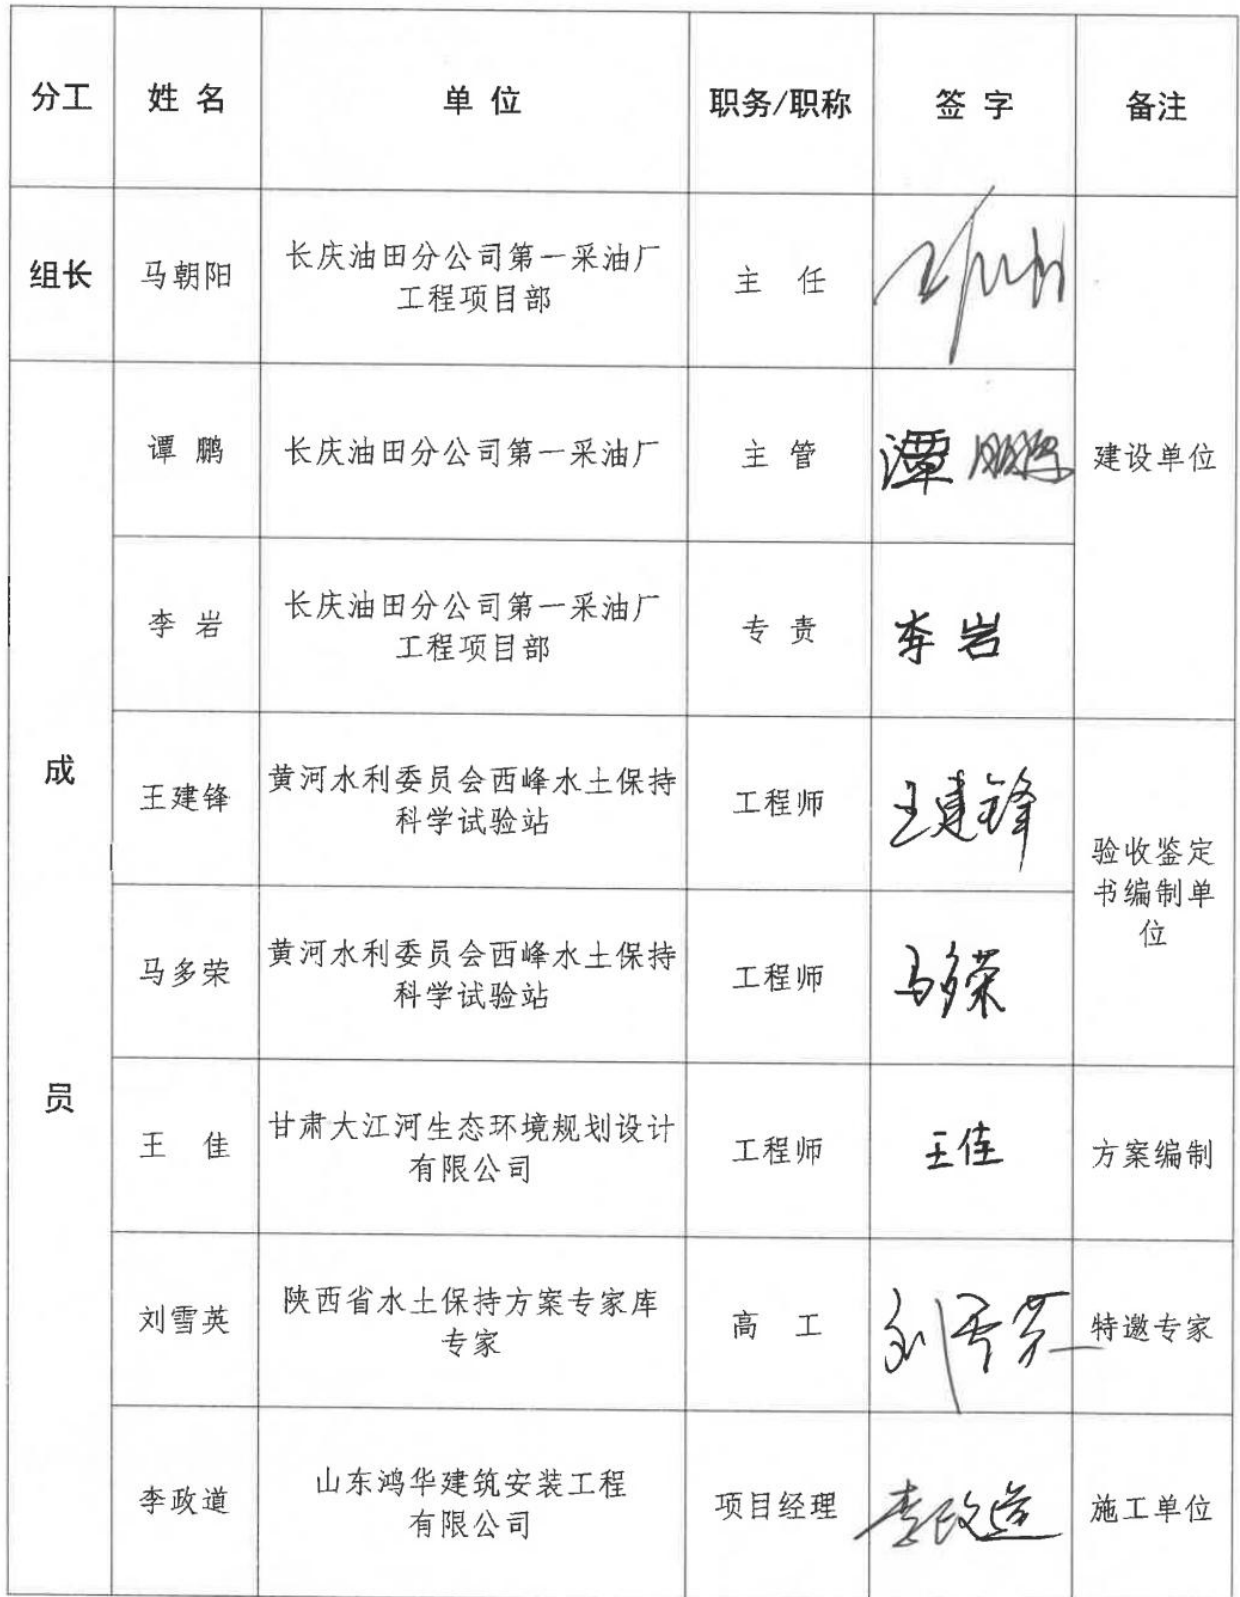 分工 姓 名 单 位 职务/职称 签 字 备注
组长 马朝阳 长庆油田分公司第一采油厂
工程项目部 主 任
谭 鹏 长庆油田分公司第一采油厂 主 管 谭鹏 建设单位
李 岩 长庆油田分公司第一采油厂
工程项目部 专 责 李岩
成
员
王建锋 黄河水利委员会西峰水土保持
科学试验站 工程师 王建锋
验收鉴定
书编制单
位
马多荣 黄河水利委员会西峰水土保持
科学试验站 工程师 马多荣
王 佳 甘肃大江河生态环境规划设计
有限公司 工程师 王佳 方案编制
刘雪英 陕西省水土保持方案专家库
专家 高 工 刘雪英 特邀专家
李政道 山东鸿华建筑安装工程
有限公司 项目经理 李政道 施工单位